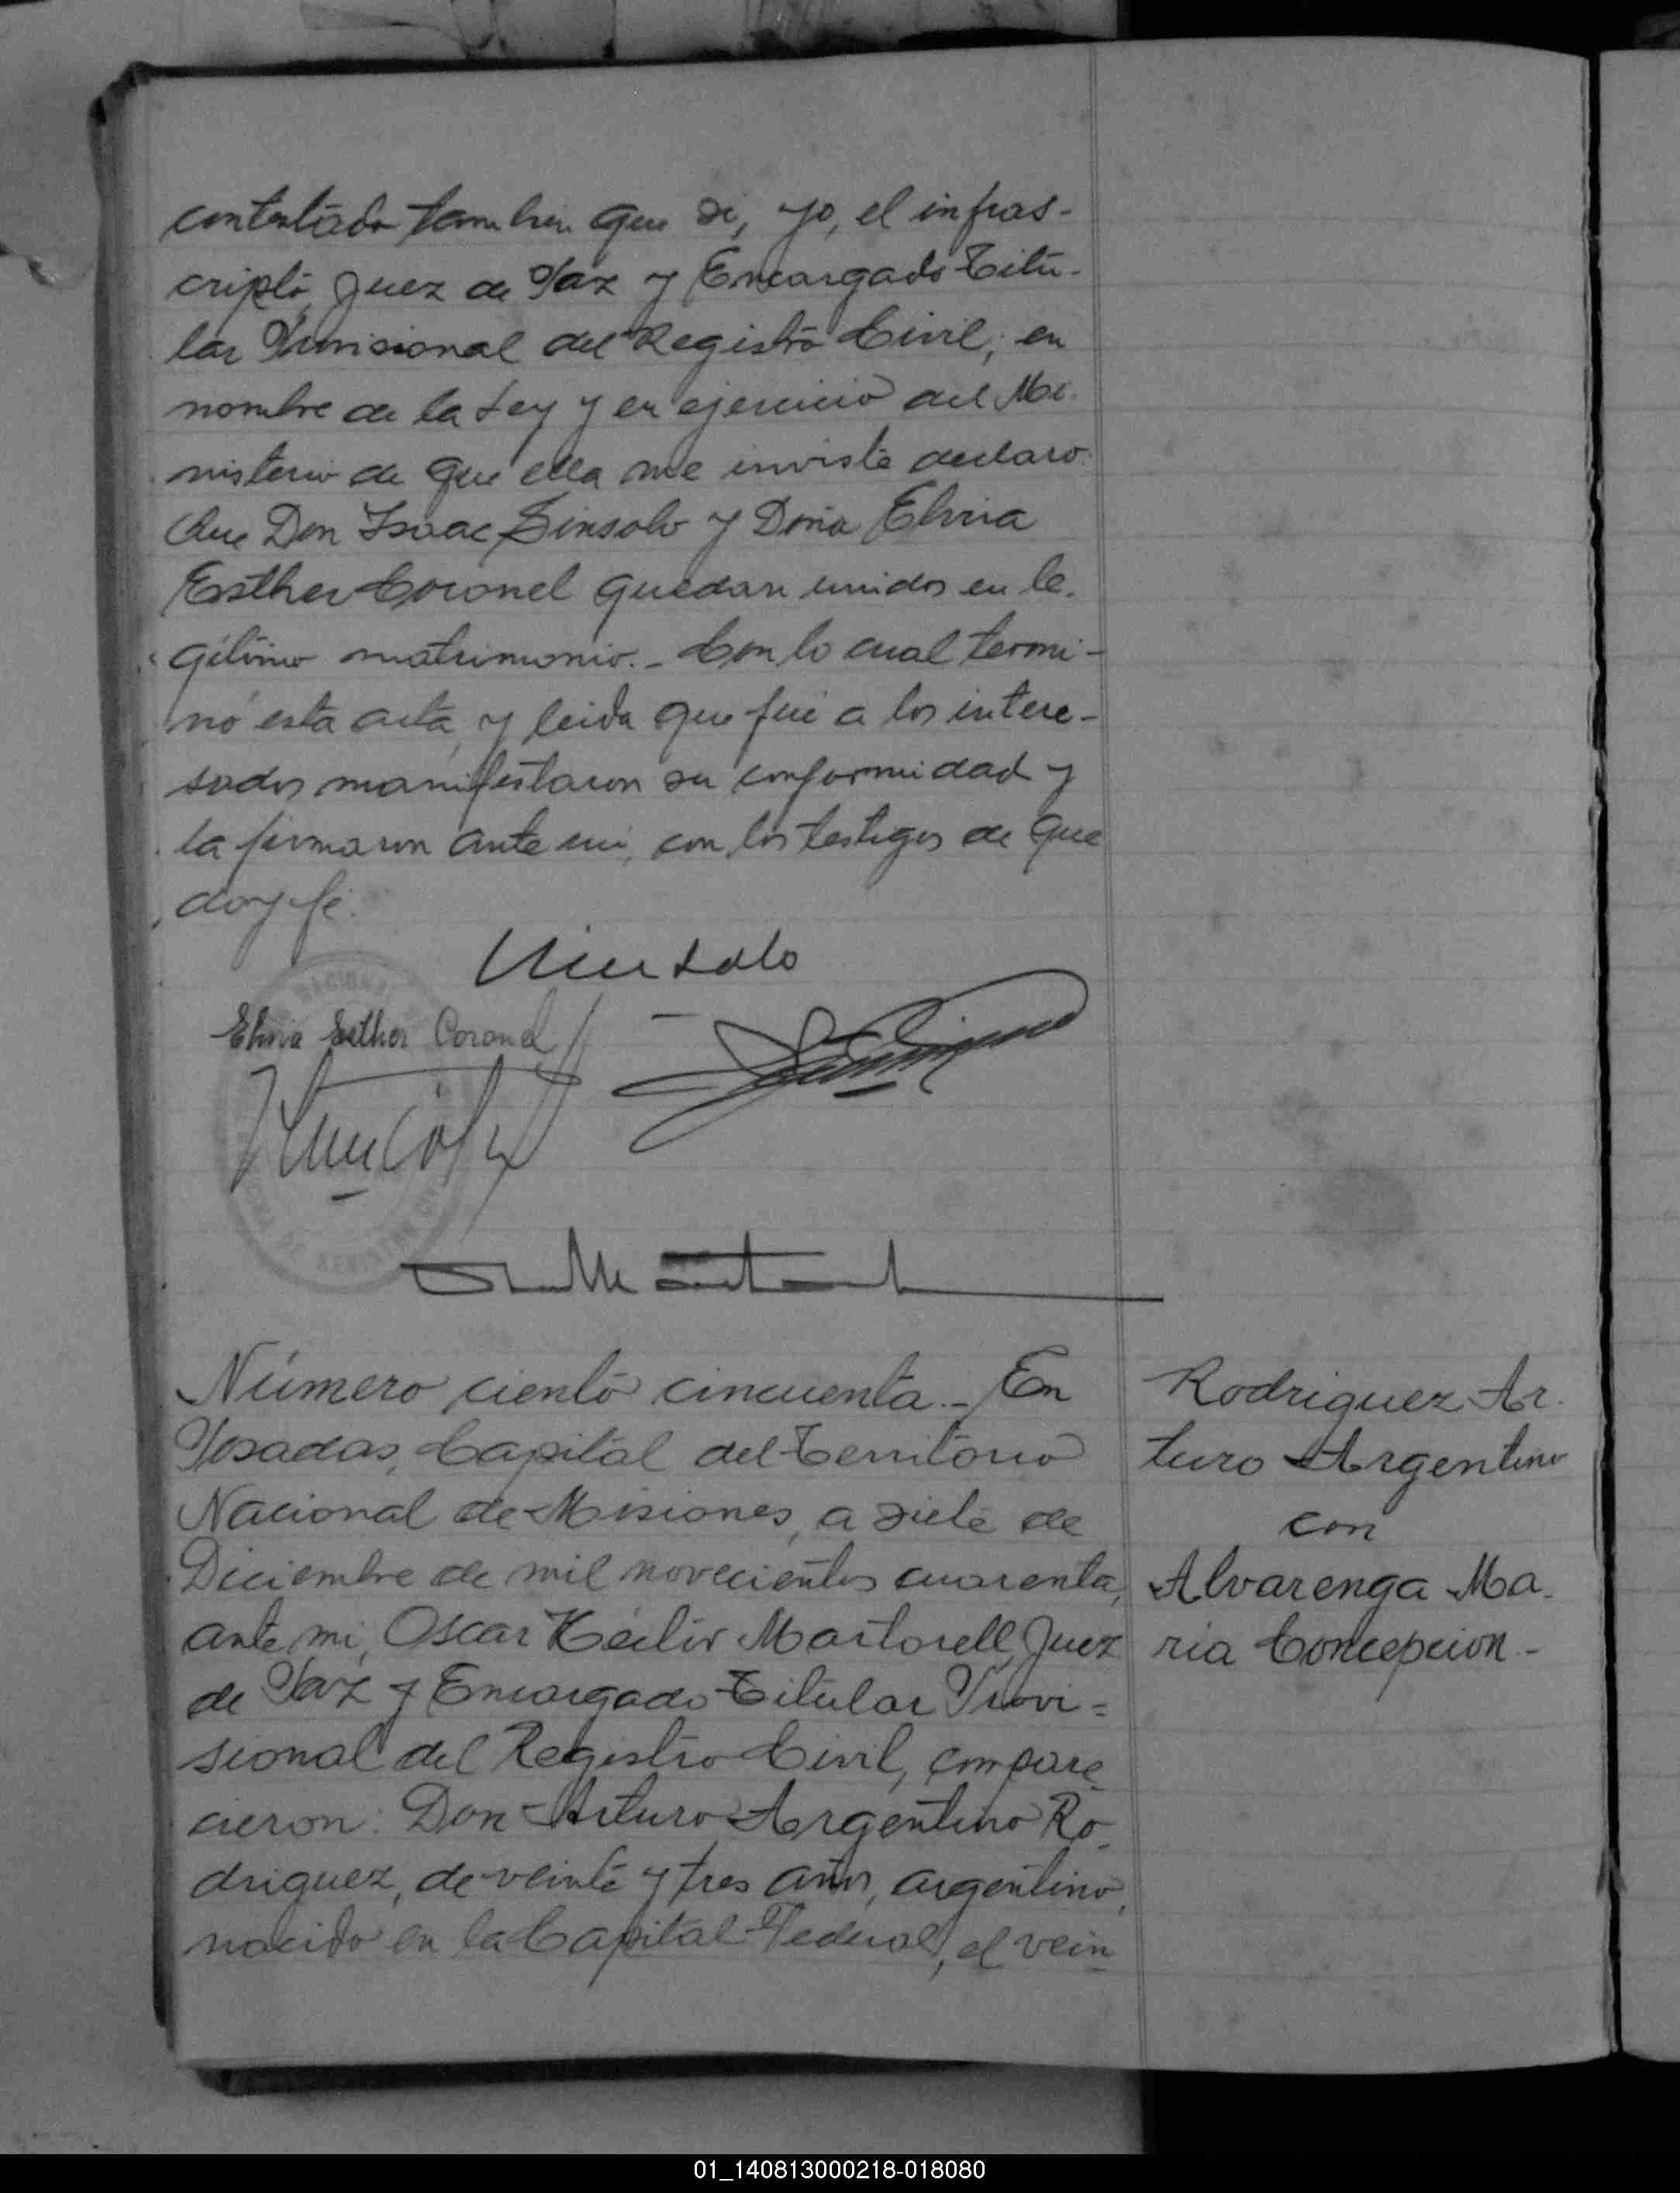 contestado tambien que si, yo, el infras-
cripto, Juez de Paz y Encargado Titu-
lar Provisional del Registro Civil, en
nombre de la Ley y en ejercicio del Mi-
nisterio de que ella me inviste declaro:
Que Don Isaac Sinsolo y Doña Elvia
Esther Coronel quedan unidos en le-
gitimo matrimonio.- Con lo cual termi-
nó esta acta, y leida que fué a los intere-
sados manifestaron su conformidad y
la firmaron ante mi, con los testigos de que
doy fé.
Elvia Esther Coronel
Número ciento cincuenta.- En
Posadas, Capital del Territorio
Nacional de Misiones, a siete de
Diciembre de mil novecientos cuarenta,
ante mi, Oscar Martorell, Juez
de Paz y Encargado Titular Provi=
sional del Registro Civil, compare-
cieron: Don Arturo Argentino Ro-
driguez, de veinte y tres años, argentino,
nacido en la Capital Federal, el vein-
Rodriguez Ar-
turo Argentino
con
Alvarenga Ma-
ria Concepcion-
01_140813000218-018080